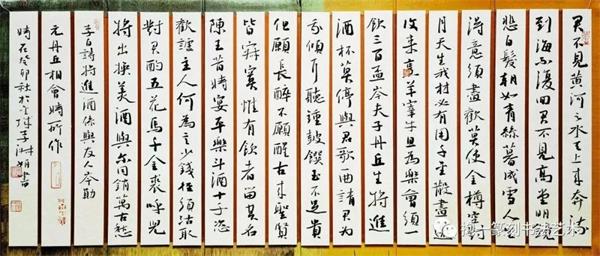 君不見黃河之水天上來奔流
到海不復回君不見高堂明鏡
悲白髮朝如青絲暮成雪人生
得意須盡歡莫使金樽空對
月天生我材必有用千金散盡還
復來烹羊宰牛且為樂會須一
飲三百盃岑夫子丹丘生將進
酒杯莫停與君歌一曲請君為
我傾耳聽鐘鼓饌玉不足貴
但願長醉不願醒古來聖賢
皆寂寞惟有飲者留其名
陳王昔時宴平樂斗酒十千恣
歡謔主人何為言少錢徑須沽取
對君酌五花馬千金裘呼兒
將出換美酒與爾同銷萬古愁
李白詩將進酒係與友人岑勛
元丹丘相會時所作
時在癸卯秋於 李 書
篆刻书画艺术